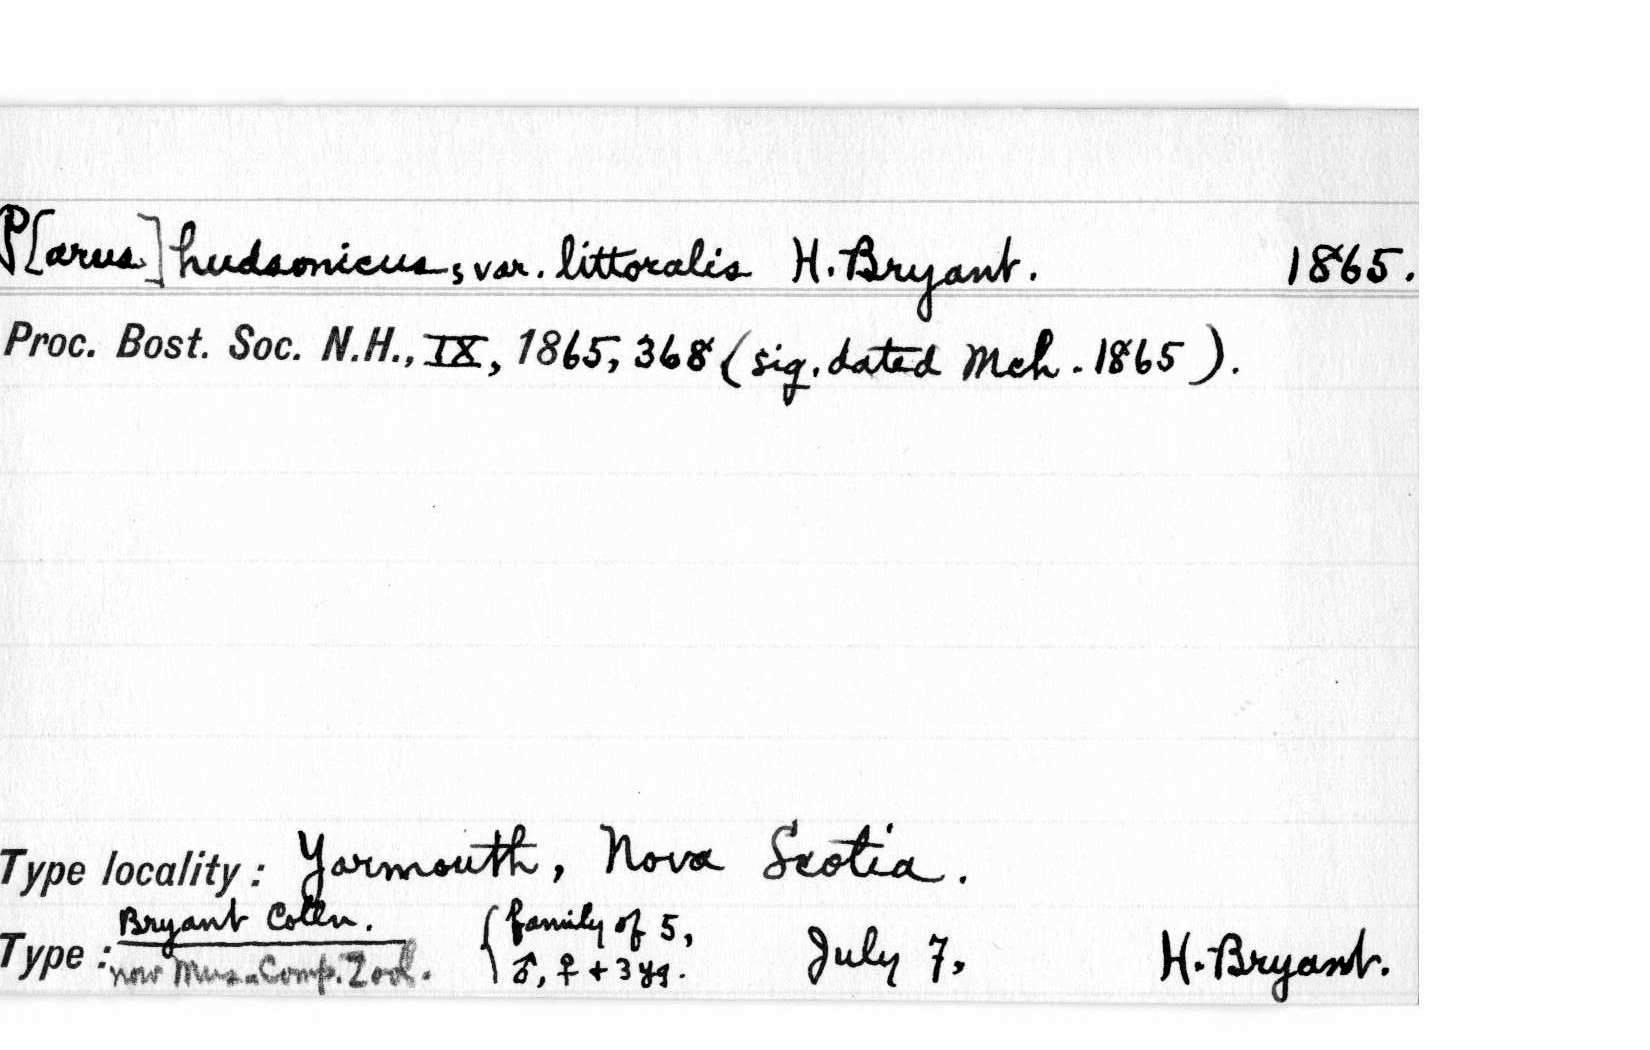 P[arus] hudsonicus, var. littoralis H. Bryant. 1865.
Proc. Bost. Soc. N.H., IX, 1865, 368 (sig. dated Mch. 1865).
Type locality: Yarmouth, Nova Scotia.
Bryant Colln. {family of 5,
Type: now Mus. Comp. Zool. ♂, ♀ + 3 yg. July 7, H. Bryant.